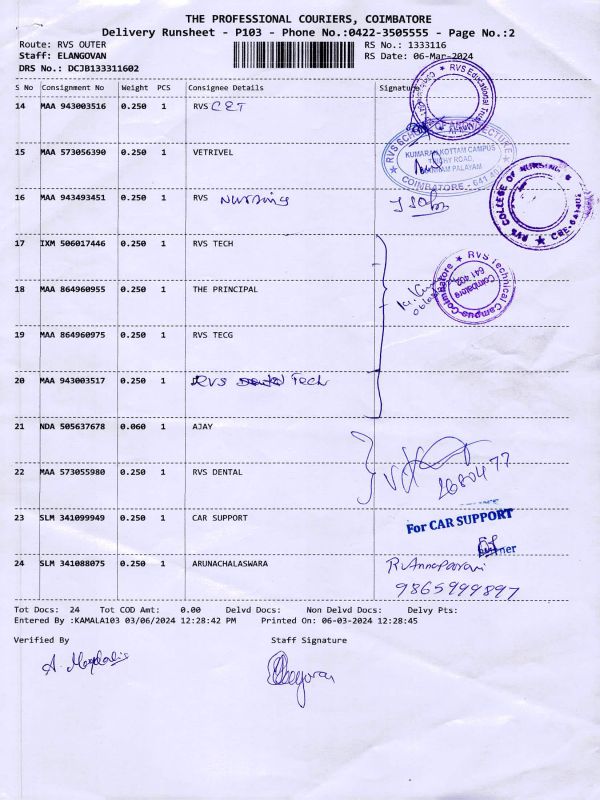 THE PROFESSIONAL COURIERS, COIMBATORE
Delivery Runsheet - P103 - Phone No.:0422-3505555 - Page No.:2
Route: RVS OUTER RS No.: 1333116
Staff: ELANGOVAN RS Date: 06-Mar-2024
DRS No.: DCJB133311602
S No Consignment No Weight PCS Consignee Details Signature
14 MAA 943003516 0.250 1 RVS CET
RVS Educational Trust
15 MAA 573056390 0.250 1 VETRIVEL
RVS SCHOOL OF ARCHITECTURE
KUMARAN KOTTAM CAMPUS
TRICHY ROAD,
COIMBATORE - 641 402
16 MAA 943493451 0.250 1 RVS Nursing
RVS COLLEGE OF NURSING
CBE-641 402
17 IXM 506017446 0.250 1 RVS TECH
RVS Technical Campus-Coimbatore
Coimbatore
641 402
18 MAA 864960955 0.250 1 THE PRINCIPAL
19 MAA 864960975 0.250 1 RVS TECG
20 MAA 943003517 0.250 1 RVS Tech
21 NDA 505637678 0.060 1 AJAY
22 MAA 573055980 0.250 1 RVS DENTAL
23 SLM 341099949 0.250 1 CAR SUPPORT
For CAR SUPPORT
Partner
24 SLM 341088075 0.250 1 ARUNACHALASWARA
9865999897
Tot Docs: 24 Tot COD Amt: 0.00 Delvd Docs: Non Delvd Docs: Delvy Pts:
Entered By :KAMALA103 03/06/2024 12:28:42 PM Printed On: 06-03-2024 12:28:45
Verified By Staff Signature